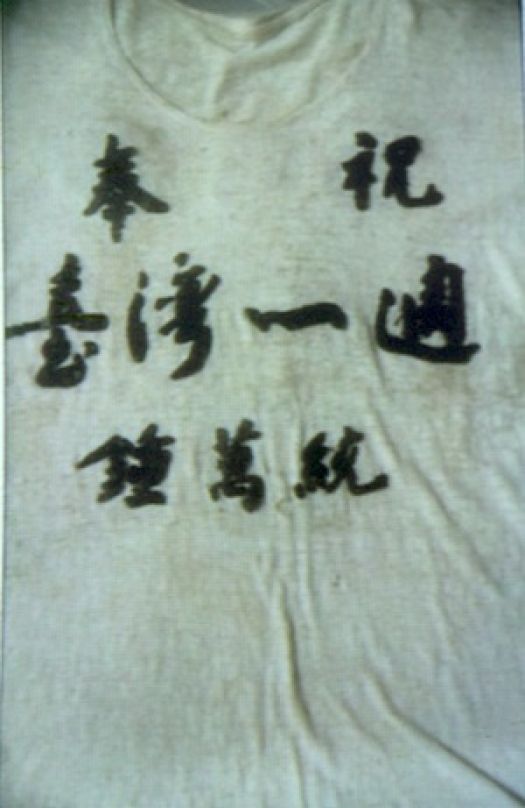 奉祝
臺灣一週
鍾萬統